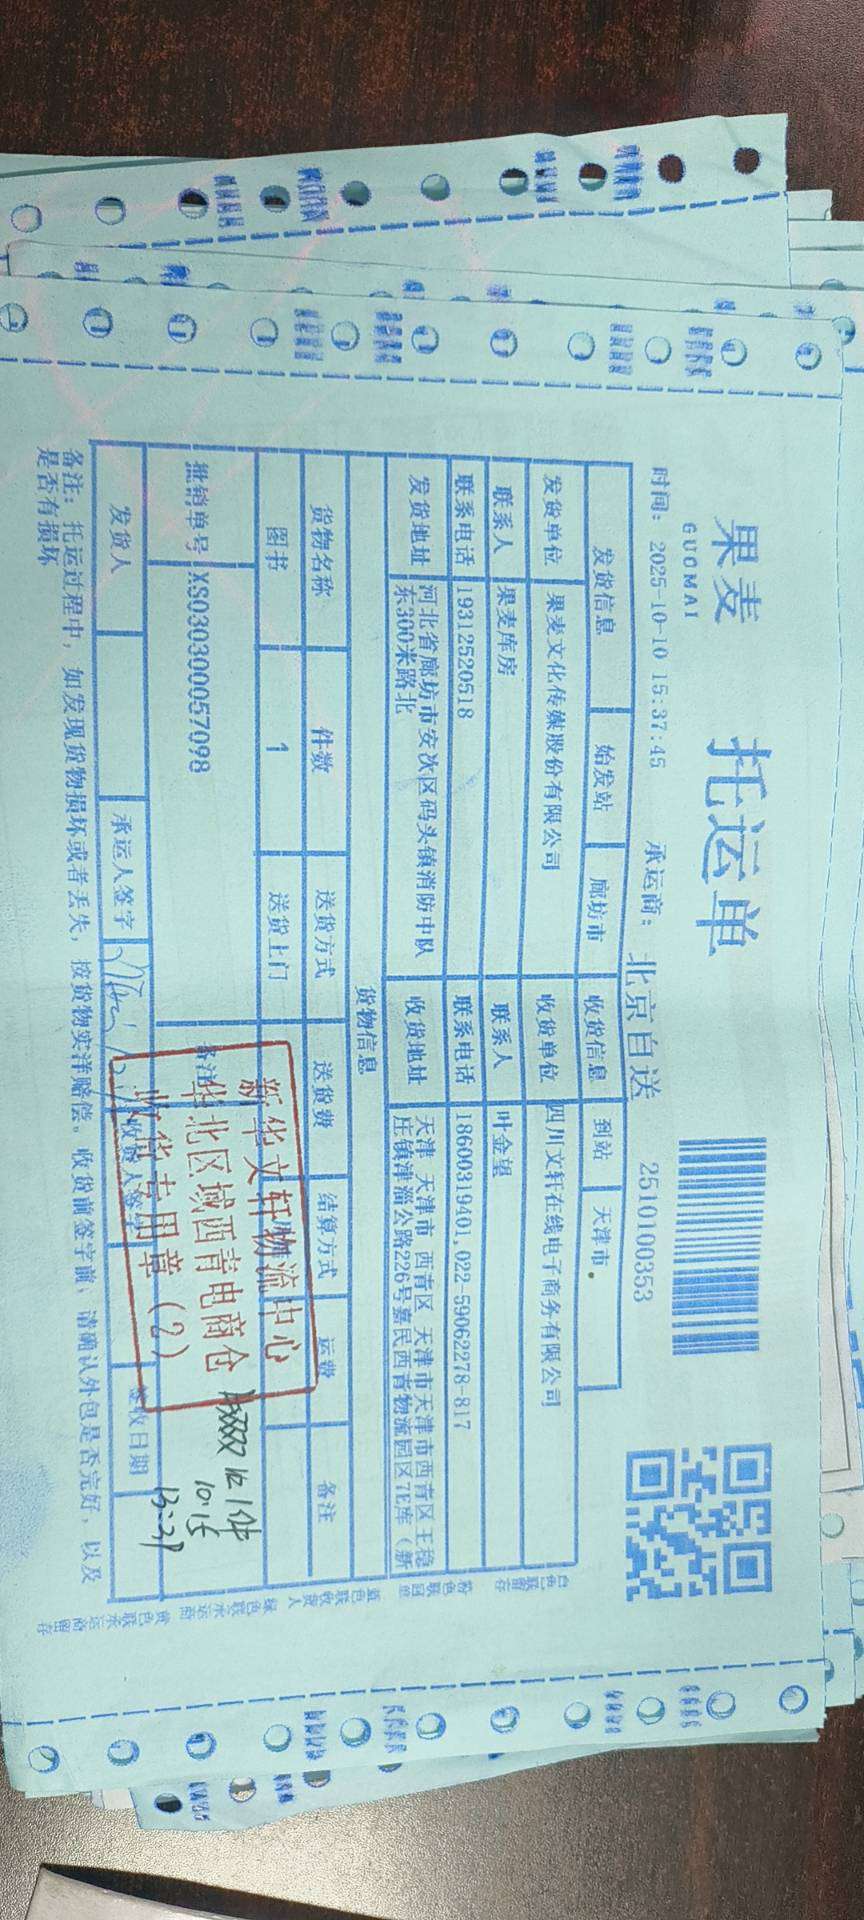 果麦
GUOMAI
托运单
时间: 2025-10-10 15:37:45 承运商: 北京自送 2510100353
发货信息 始发站 廊坊市 收货信息 到站 天津市
发货单位 果麦文化传媒股份有限公司 收货单位 四川文轩在线电子商务有限公司
联系人 果麦库房 联系人 叶金望
联系电话 19312520518 联系电话 18600319401,022-59062278-817
发货地址 河北省廊坊市安次区码头镇消防中队东300米路北 收货地址 天津 天津市 西青区 天津市天津市西青区王稳庄镇津淄公路226号嘉民西青物流园区7E库（新
货物信息
货物名称 件数 送货方式 送货费 结算方式 运费 备注
图书 1 送货上门
批销单号 XS030300057098 备注
新华文轩物流中心
华北区域西青电商仓
收货专用章（2）
收1件
10.15
13:31
发货人 承运人签字 收货人签字 签收日期
备注: 托运过程中, 如发现货物损坏或者丢失, 按货物实洋赔偿。收货前签字前, 请确认外包是否完好, 以及
是否有损坏
白色联留存 粉色联回单 蓝色联收货人 绿色联承运商 黄色联承运商留存